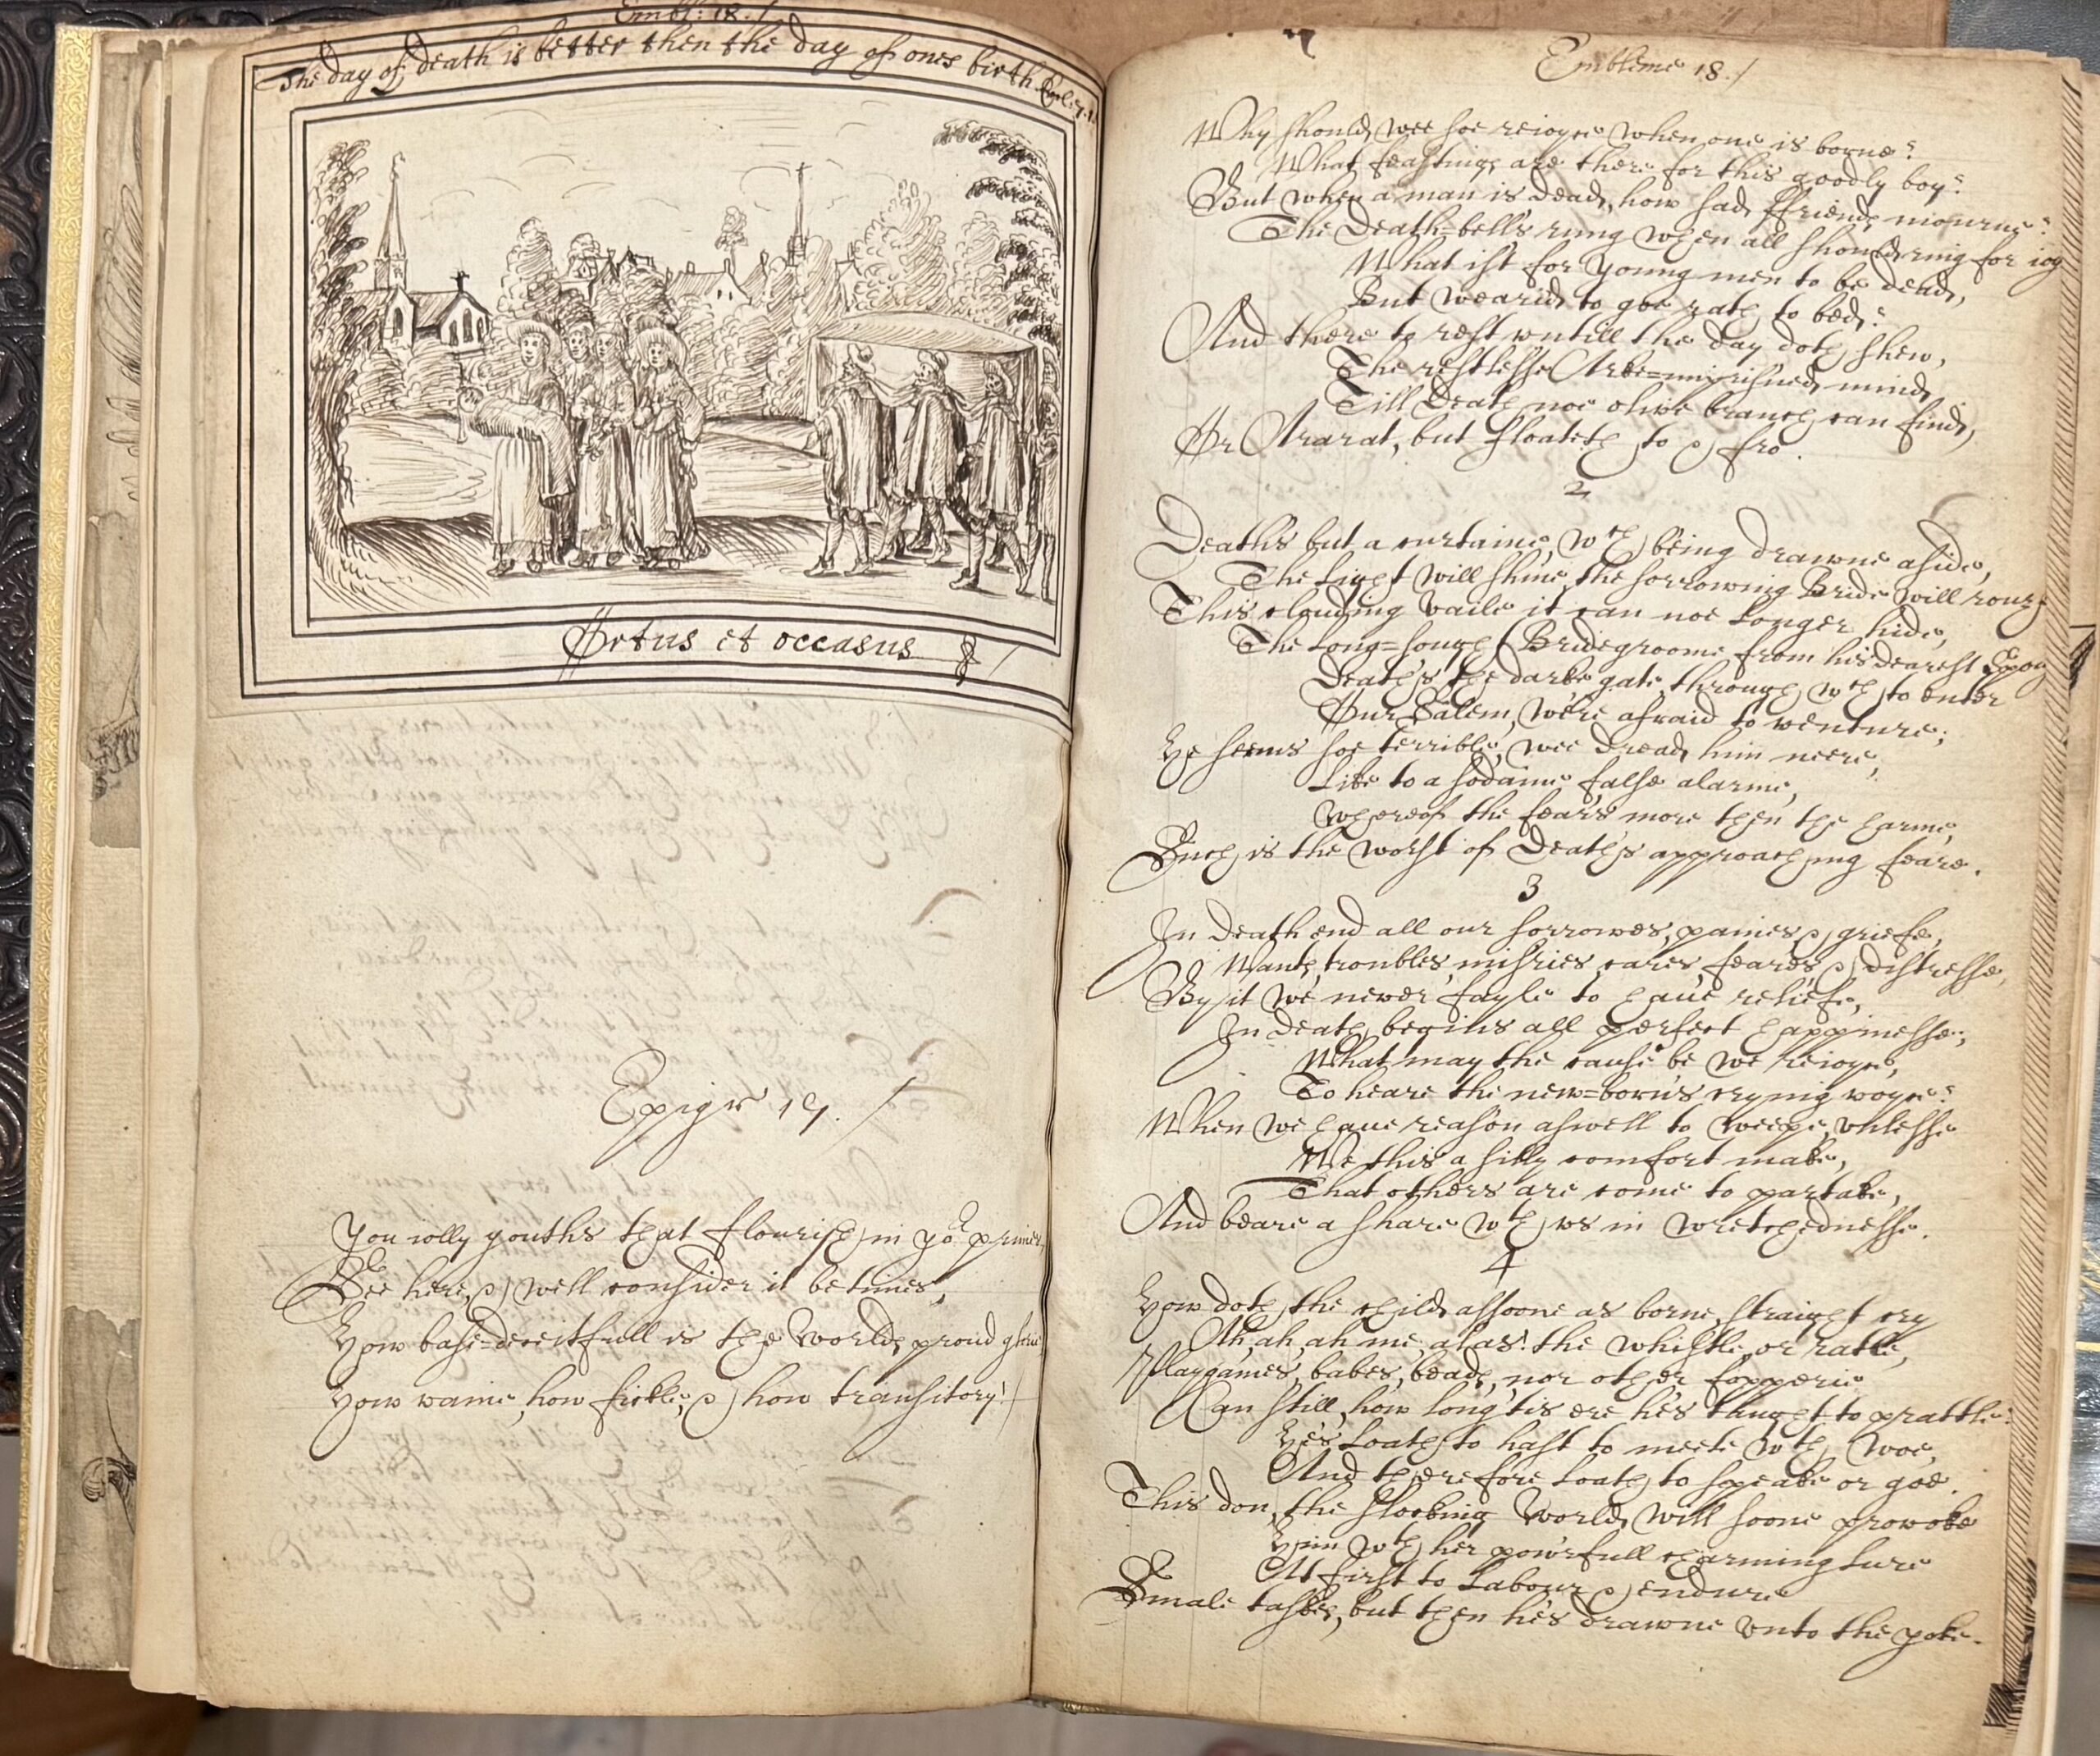 Embl: 18./
The day of death is better then the day of ones birth Eccl: 7.1.
Ortus et occasus
Epigr 19. /
You iolly youths that flourish in yor prime,
See here, & well consider it betimes,
How base=deceitfull is the Worlds proud glorie
How vaine, how fickle, & how transitory!
Embleme 18./
Why should wee soe reioyce when one is borne?
What feastings are there for this goodly boy?
But when a man is dead, how sad ffriends mourne?
The Death=bell's rung when all should ring for ioy
What ist for young men to be dead,
But wearied to goe rath to bed?
And there to rest vntill the day doth shew,
The restlesse Arke=imprisned mind,
Till Death noe olive branch can find,
Or Ararat, but floateth to & fro.
2
Deaths but a curtaine, wch being drawne aside,
The Light will shine, the sorrowing Bride will
This clouding vaile it can noe longer hide,
The Long=sought Bridegroome from his dearest
Death's the darke gate, through wch to enter
Our Salem, we're afraid to venture;
He seems soe terrible, wee dread him neere,
Like to a sodaine false alarme,
Whereof the fear's more then the harme,
Such is the worst of Death's approaching feare.
3
In Death end all our sorrowes, paines & griefe,
Wants, troubles, misries, cares, feares, & distresse,
By it we never fayle to haue reliefe,
In death begins all perfect happinesse;
What may the cause be we reioyce,
To heare the new=born's crying voyce?
When we haue reason aswell to weepe, vnlesse
We this a silly comfort make,
That others are come to partake,
And beare a share wth vs in wretchednesse.
4
How doth the child assoone as borne, straight cry
Ah, ah, ah me, alas! the whistle, or rattle,
Playgames, babes, beads, nor other fopperie
Can still, how long 'tis ere he's taught to prattle?
He's Loath to hast to meete wth woe,
And therefore Loath to speake or goe.
This don, the World will soone provoke
Him wth her pow'rfull charming Lure
At first to Labour & endure
Smale taskes, but then he's drawne vnto the yoke.